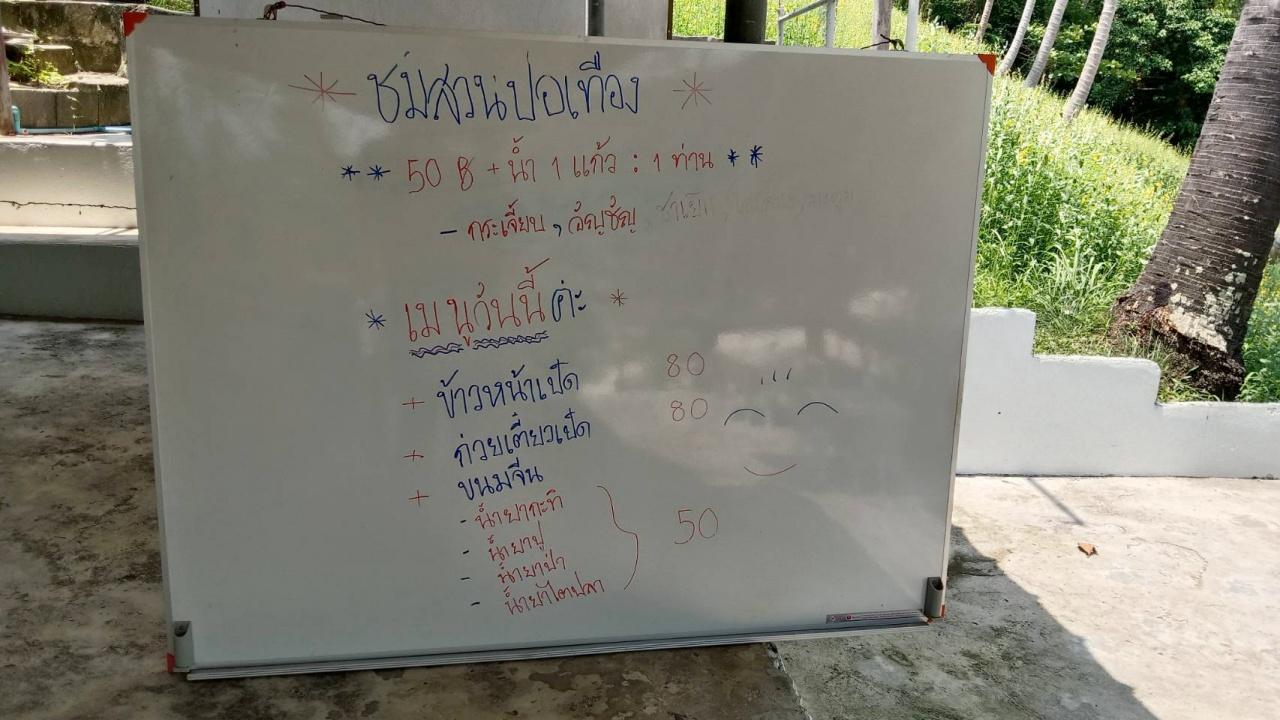 ชมสวนปอเทือง
** 50 ฿ + น้ำ 1 แก้ว : 1 ท่าน **
- กระเจี๊ยบ, อัญชัญ, ชาเย็น
* เมนูวันนี้ค่ะ *
+ ข้าวหน้าเป็ด 80
+ ก๋วยเตี๋ยวเป็ด 80
+ ขนมจีน
- น้ำยากะทิ
- น้ำยาปู 50
- น้ำยาป่า
- น้ำยาไตปลา